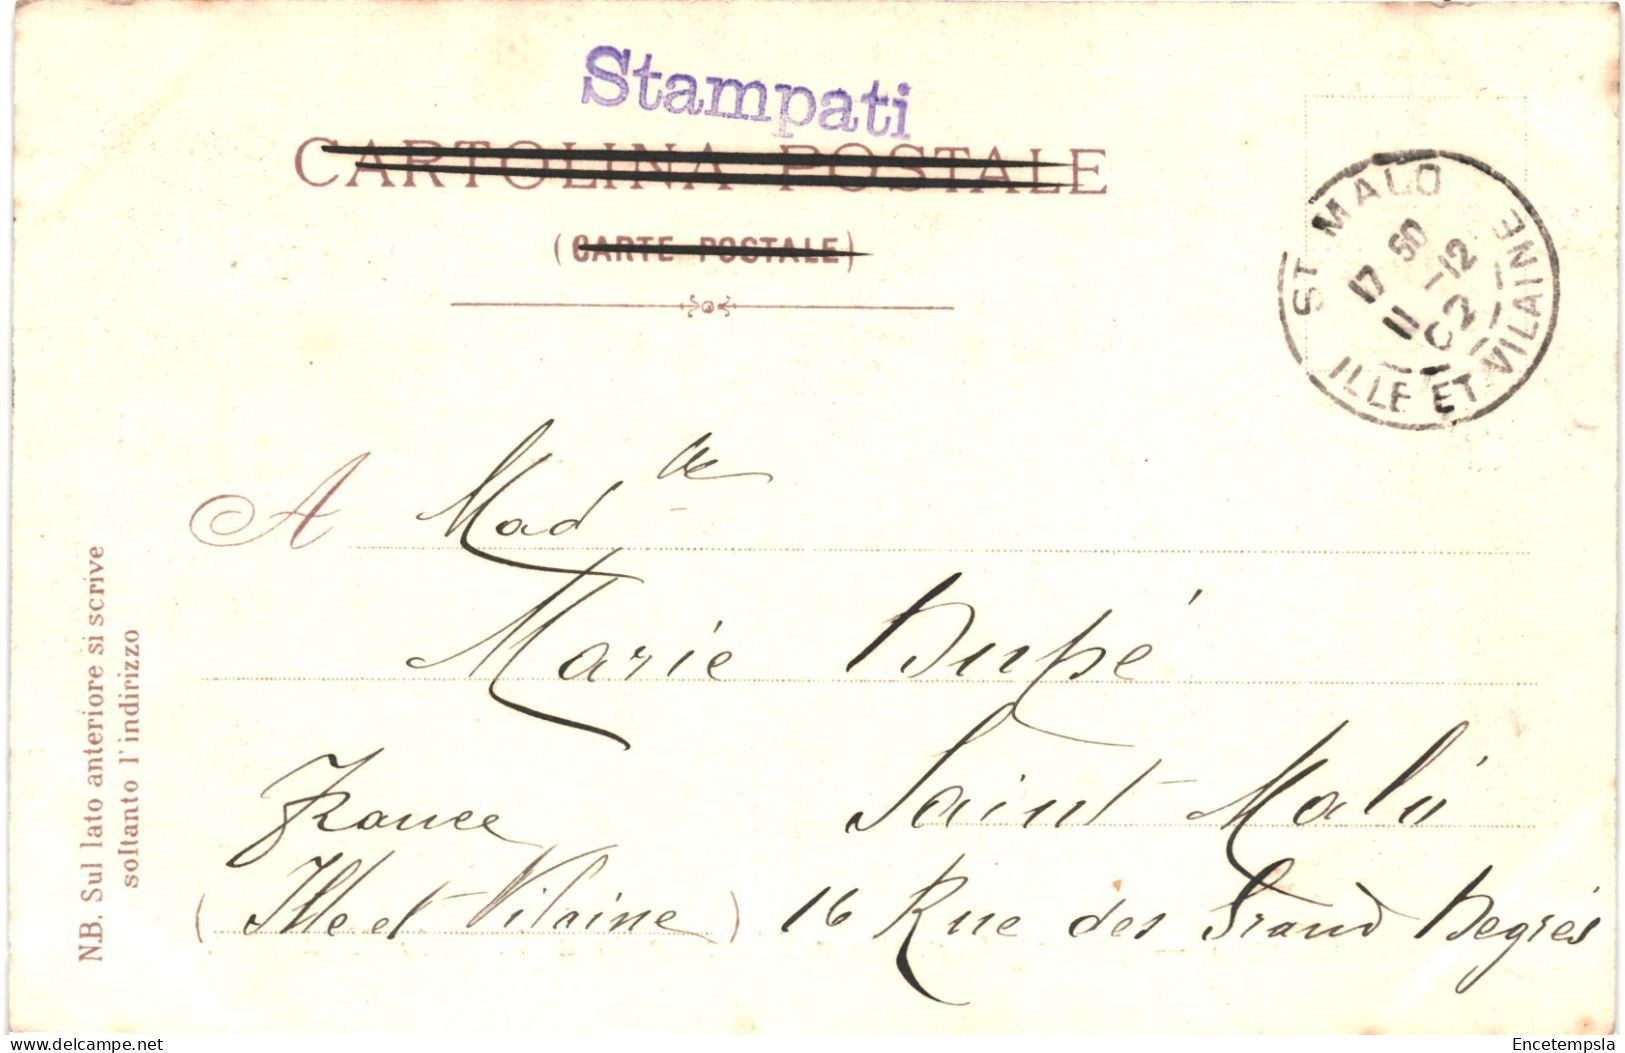 Stampati
CARTOLINA POSTALE
(CARTE POSTALE)
ST MALO
ILLE ET VILAINE
17 50
11 -12
02
A Mad lle
Marie Dupé
Saint Malo
France
(Ille et Vilaine) 16 Rue des Grand Degrés
N.B. Sul lato anteriore si scrive
soltanto l'indirizzo
Encetempsla